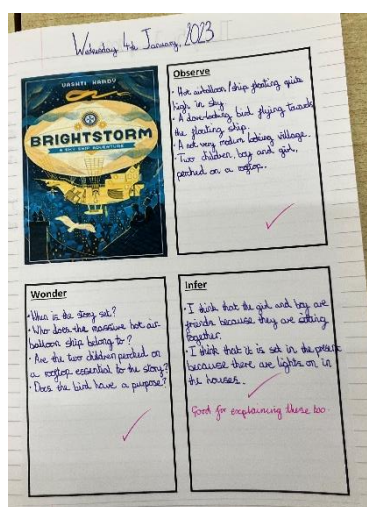 Wednesday 4th January, 2023
VASHTI HARDY
BRIGHTSTORM
A SKY-SHIP ADVENTURE
Observe
· Hot airballoon/ship floating quite
high in sky.
· A dove-looking bird flying towards
the floating ship.
· A not very modern looking village.
· Two children, boy and girl,
perched on a rooftop.
Wonder
· When is the story set?
· Who does the massive hot air-
balloon ship belong to?
· Are the two children perched on
a rooftop essential to the story?
· Does the bird have a purpose?
Infer
· I think that the girl and boy are
friends because they are sitting
together.
· I think that it is set in the present
because there are lights on in
the houses.
Good for explaining these too.